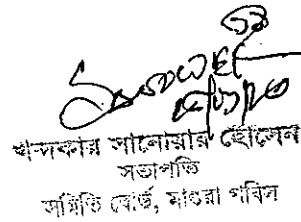 খন্দকার সানোয়ার হোসেন
সভাপতি
সমিতি বোর্ড, মাগুরা পবিস